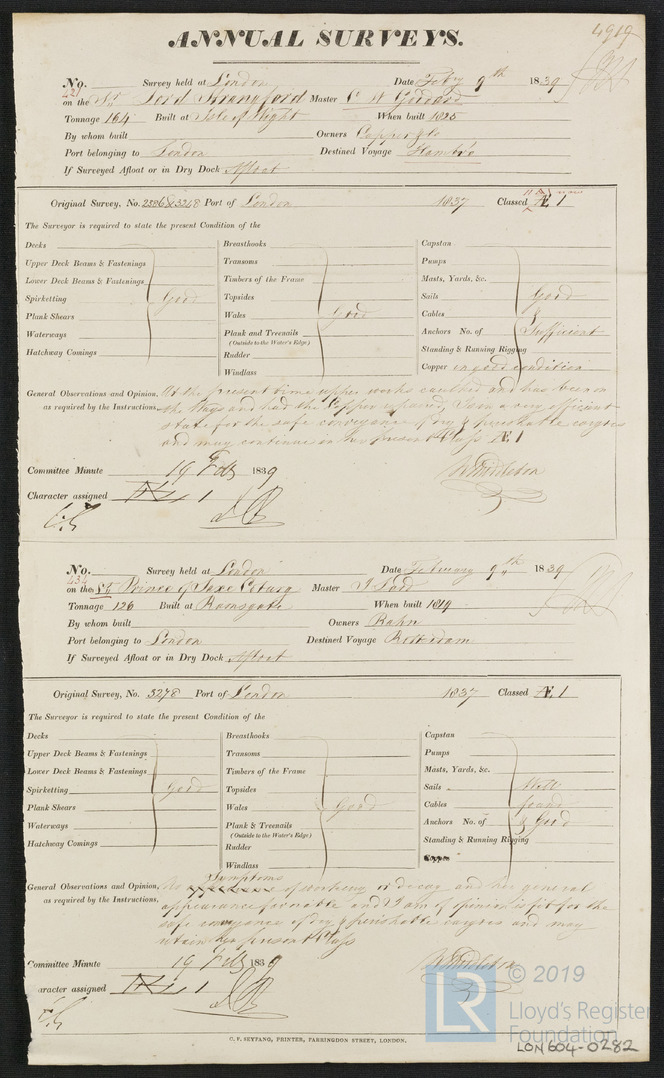 4919
ANNUAL SURVEYS.
No. 421 Survey held at London Date Feby 9th 1839
on the Lord Strangford Master Goddard
Tonnage 164 Built at Isle of Wight When built 1825
By whom built Owners Capper & Co
Port belonging to London Destined Voyage Hambro
If Surveyed Afloat or in Dry Dock Afloat
Original Survey, No. 2556 & 3248 Port of London 1837 Classed Æ 1
The Surveyor is required to state the present Condition of the
Decks Breasthooks Capstan
Upper Deck Beams & Fastenings Transoms Pumps
Lower Deck Beams & Fastenings Timbers of the Frame Masts, Yards, &c.
Spirketting Good Topsides Sails Good
Plank Shears Wales Good Cables &
Waterways Plank and Treenails Anchors No. of Sufficient
(Outside to the Water's Edge)
Hatchway Comings Rudder Standing & Running Rigging
Windlass Copper in good condition
General Observations and Opinion, At the present time upper works caulked and has been on
as required by the Instructions. the Ways and had the Copper repaired, I am a very efficient
state for the safe conveyance of dry & perishable cargoes
and may continue in her present Class Æ 1
Committee Minute 19 Feby 1839 Middleton
Character assigned Æ 1
No. 434 Survey held at London Date February 9th 1839
on the Prince of Saxe Coburg Master J Ladd
Tonnage 126 Built at Ramsgate When built 1819
By whom built Owners Rahn
Port belonging to London Destined Voyage Rotterdam
If Surveyed Afloat or in Dry Dock Afloat
Original Survey, No. 3278 Port of London 1837 Classed Æ 1
The Surveyor is required to state the present Condition of the
Decks Breasthooks Capstan
Upper Deck Beams & Fastenings Transoms Pumps
Lower Deck Beams & Fastenings Timbers of the Frame Masts, Yards, &c.
Spirketting Good Topsides Sails Well
Plank Shears Wales Good Cables found
Waterways Plank & Treenails Anchors No. of & Good
(Outside to the Water's Edge)
Hatchway Comings Rudder Standing & Running Rigging
Windlass
Symptoms
General Observations and Opinion, No of working or decay and her general
as required by the Instructions. appearance favorable and I am of opinion is fit for the
safe conveyance of dry & perishable cargoes and may
retain her present Class
Committee Minute 19 Feby 1839 Middleton
aracter assigned Æ 1
C. F. SEYFANG, PRINTER, FARRINGDON STREET, LONDON.
LR © 2019
Lloyd's Register
Foundation
LON604-0282